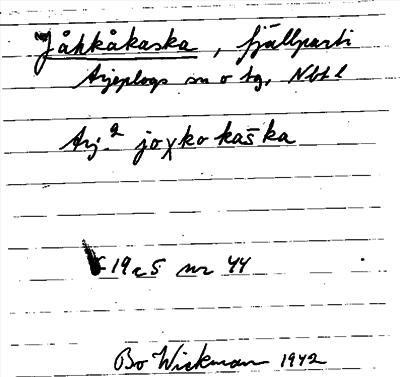 Jåhkåkaska, fjällparti
Arjeplogs sn o tg, Nbtl
Arj. 2 joχkokaška
19 a 5 nr 44
Bo Wickman 1942